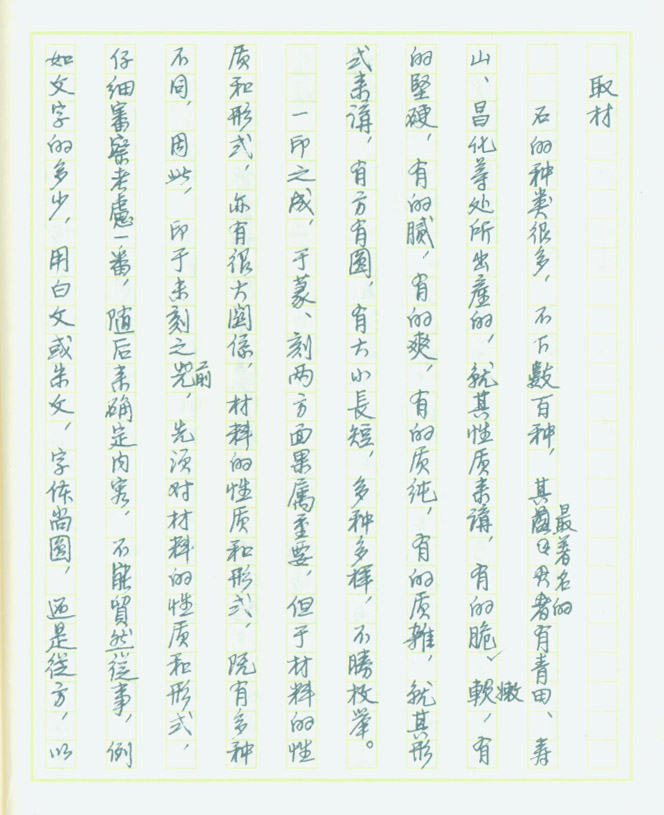 取材
石的种类很多，不下數百种，其最著名的者有青田、寿
山、昌化等处所出產的，就其性质来講，有的脆、軟嫩，有
的堅硬，有的腻，有的爽，有的质纯，有的质雜，就其形
式来講，有方有圆，有大小長短，多种多样，不勝枚举。
一印之成，于篆、刻两方面果属重要，但于材料的性
质和形式，亦有很大関係，材料的性质和形式，既有多种
不同，因此，印于未刻之前，先须对材料的性质和形式，
仔细審察考慮一番，随后来确定内容，不能貿然從事，例
如文字的多少，用白文或朱文，字体尚圆，还是從方，以